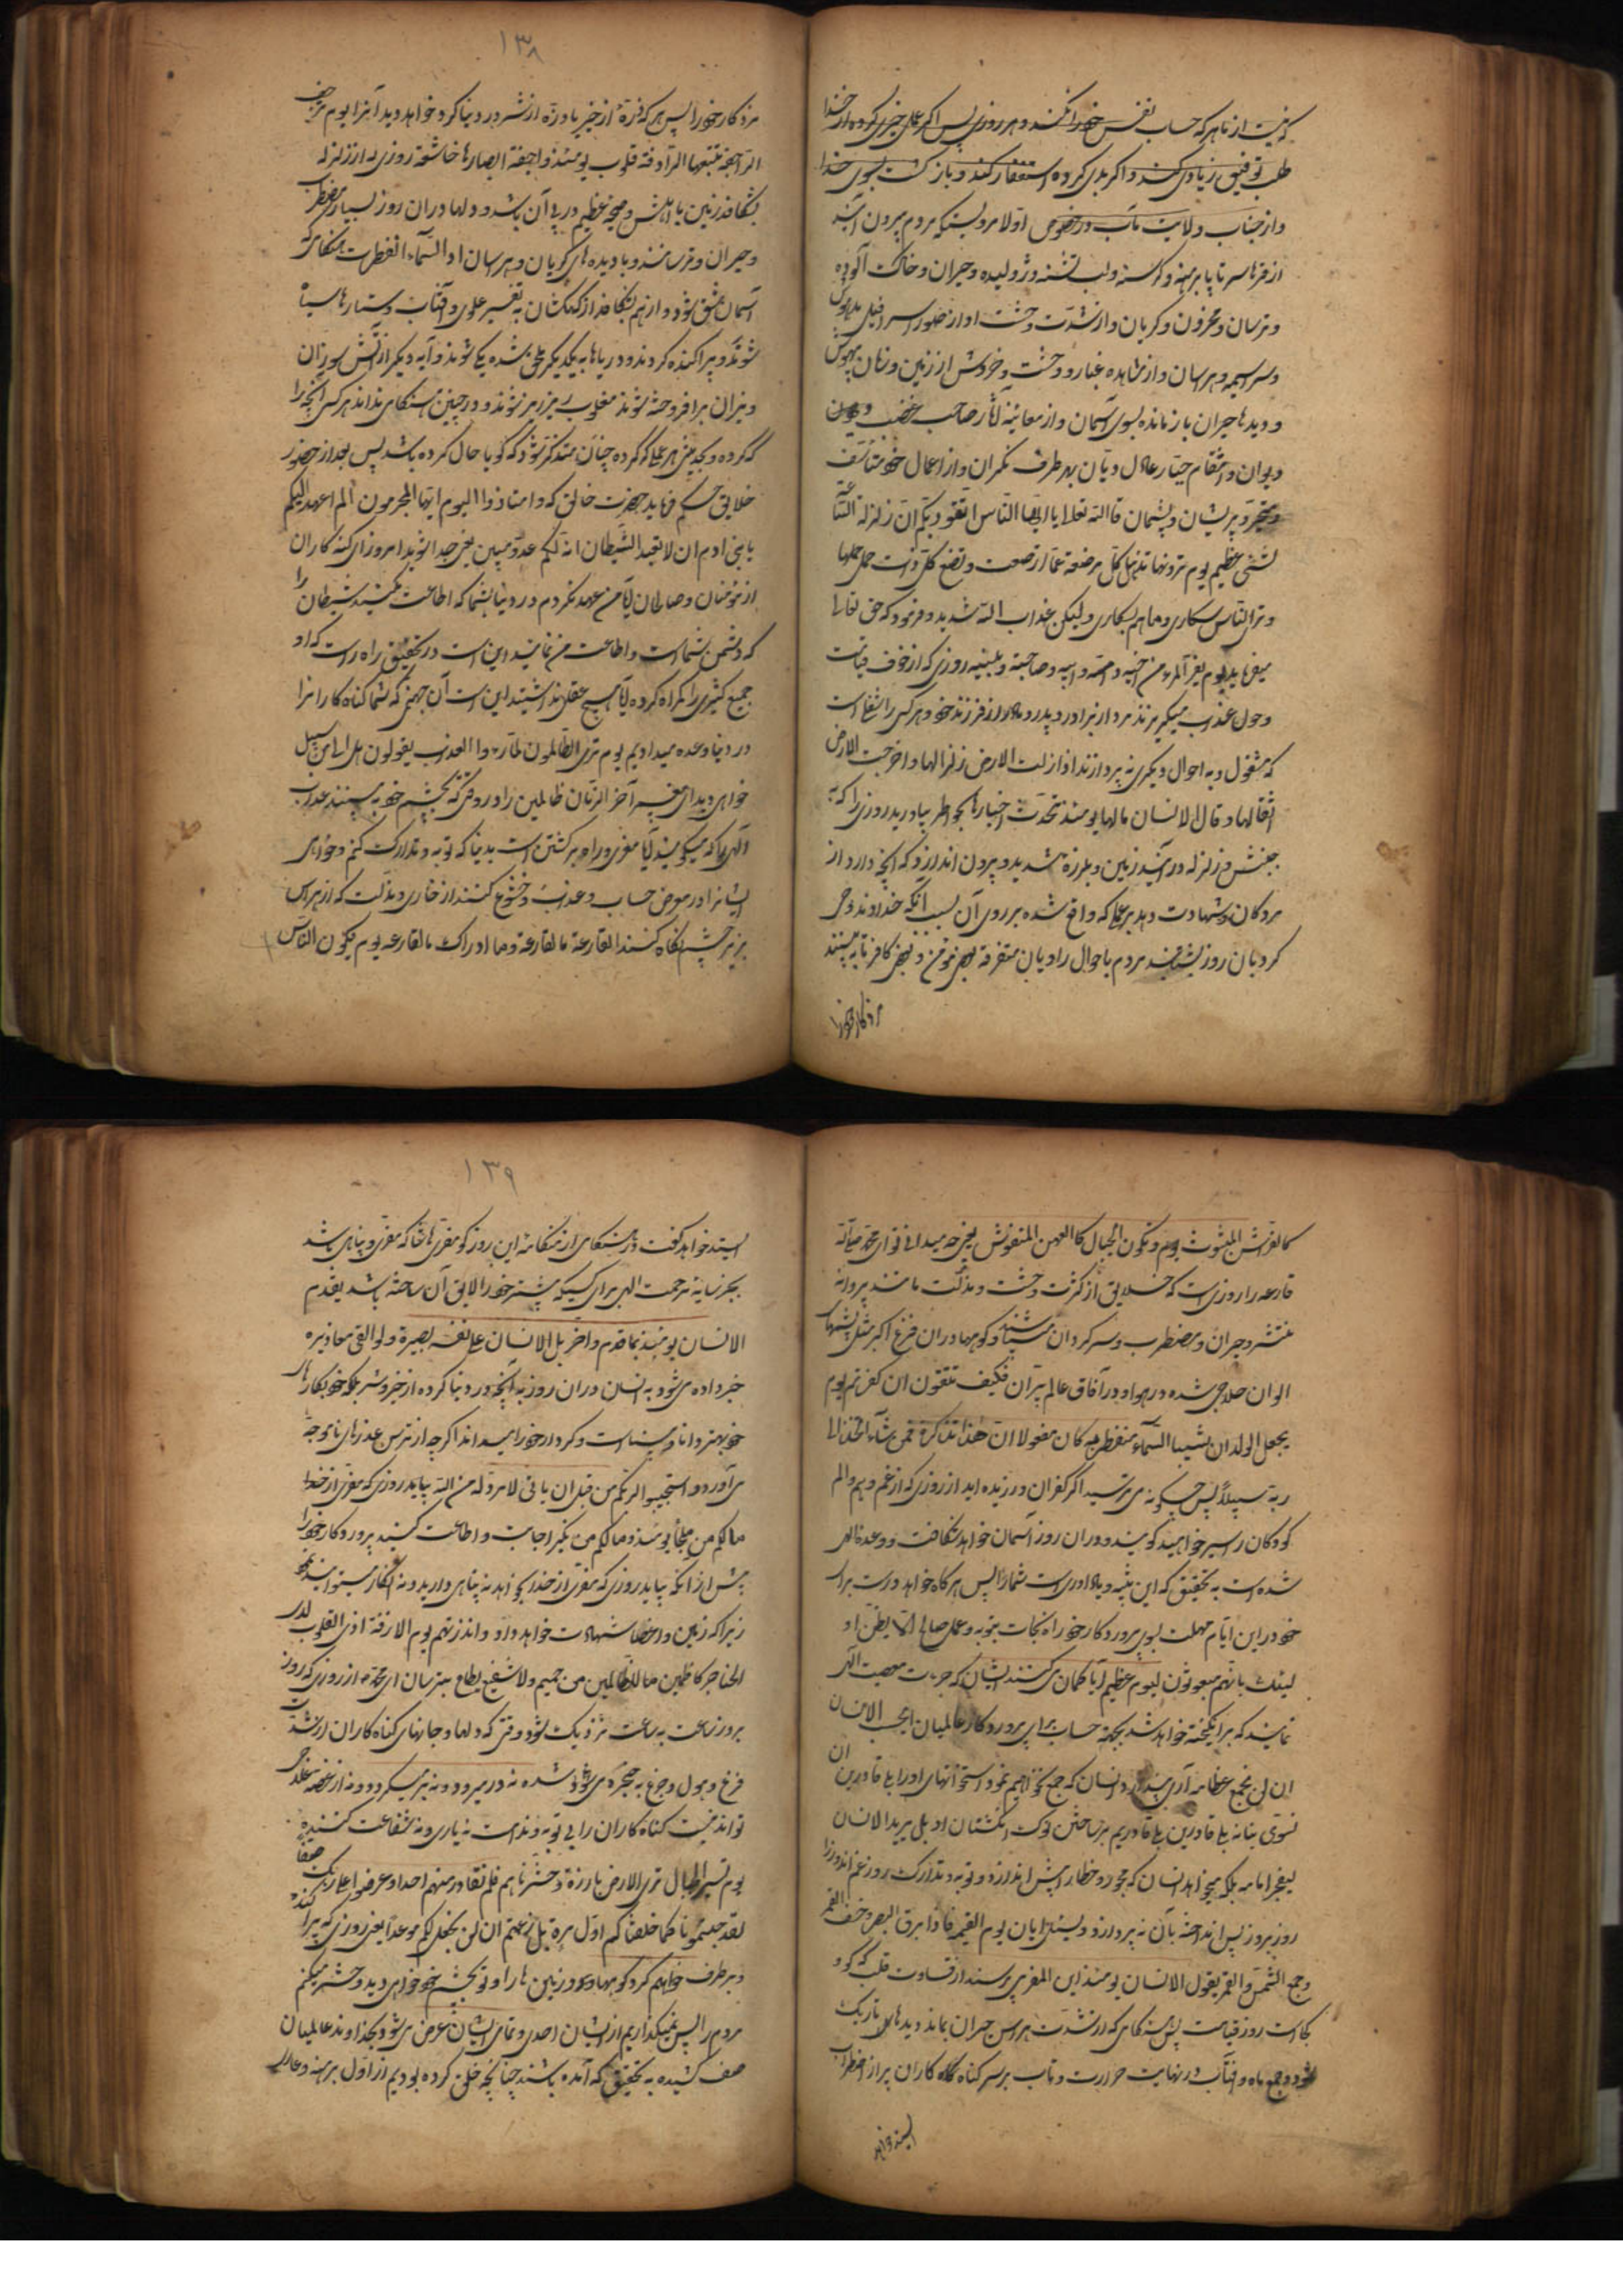 که نیست از ما هر که حساب نفس خود را نکند و هر روزی پس اگر عمل خیری کرده از خدا
طلب توفیق زیادی کند و اگر بدی کرده استغفار کند و بازگشت بسوی خدا
و از جناب ولایت مآب در خصوص اولا مرویست که مردم بیرون آیند
از قبرها سر تا پا برهنه و گرسنه و لب تشنه و ژولیده و حیران و خاک آلوده
و ترسان و محزون و گریان و از شدت وحشت آواز صور اسرافیل مدهوش
و سراسیمه و هراسان و از مشاهده غبار و وحشت و خروش از زمین و زمان بیهوش
و دیدها حیران باز مانده بسوی آسمان و از معاینه آثار صاحب غضب و
دیوان و انتقام جبار عادل دیان بهر طرف نگران و از اعمال خود متأسف
و متحیر و پریشان و پشیمان قال الله تعالی یا ایها الناس اتقوا ربکم ان زلزلة الساعة
لشئ عظیم یوم ترونها تذهل کل مرضعة عما ارضعت و تضع کل ذات حمل حملها
و تری الناس سکاری و ما هم بسکاری ولیکن عذاب الله شدید و فرمود که حق تعالی
میفرماید یوم یفر المرء من اخیه و امه و ابیه و صاحبته و بنیه روزی که از خوف قیامت
و هول عذاب میگریزند مرد از برادر و پدر و مادر و از فرزند خود و هر کس را شغلی است
که مشغول و به احوال دیگری نه پردازند اذا زلزلت الارض زلزالها و اخرجت الارض
اثقالها و قال الانسان مالها یومئذ تحدث اخبارها بخاطر بیاورید روزی را که
جنبش و زلزله در آید زمین و بلرزه شدید و بیرون اندازد که آنچه دارد از
مردگان و شهادت دهد بر عملی که واقع شده بر روی آن بسبب آنکه خداوند وحی
کرد بآن روز بشتابند مردم باحوال راویان متفرقه بعضی مؤمن و بعضی کافر تا به بینند
مزد کار خود را
۱۳۸
مزد کار خود را پس هر که ذرهٔ از خیر یا ذره از شر در دنیا کرد خواهد دید آنرا یوم ترجف
الراجفة تتبعها الرادفة قلوب یومئذ واجفة ابصارها خاشعة روزی که از زلزله
بشکافد زمین با اهلش و صیحه عظیم در پی آن باشد و دلها در آن روز بسیار مضطرب
و حیران و ترسانند و با دیده های گریان و هراسان اذا السماء انفطرت هنگامی که
آسمان شق شود و از هم بشکافد از کهکشان به تفسیر علوی و آفتاب و ستارها سیاه
شوند و پراکنده گردند و دریاها به یکدیگر ملحق شده یکی شوند و آبه دیگر از آتش سوزان
و نیران برافروخته شوند مغلوب زیر و زبر شوند و در چنین هنگامی بداند هر کس آنچه را
که کرده و بحدیثی هر عملی که کرده چنان متذکر شود که گویا حال کرده باشد پس بعد از حضور
خلایق حکم فرماید حضرت خالق که وامتازوا الیوم ایها المجرمون الم اعهد الیکم
یا بنی ادم ان لا تعبدوا الشیطان انه لکم عدو مبین یعنی جدا شوید امروز ای گنه کاران
از مؤمنان و صالحان آیا من عهد نکردم در دنیا بشما که اطاعت نکنید شیطان را
که دشمن شماست و اطاعت من نمائید این است در تحقیق راه راست که او
جمع کثیری را گمراه کرده آیا هیچ عقل نداشتید این است آن جهنمی که شما گناه کارانرا
در دنیا وعده میدادیم یوم تری الظالمون لما راوا العذاب یقولون هل الی مرد من سبیل
خواهی دید ای پیغمبر آخر الزمان ظالمین را در وقتی که بچشم خود به بینند عذاب
الهی را که میگویند آیا مفری و راه برگشتن است بدنیا که توبه و تدارک کنم و خواهی
ایشانرا در معرض حساب و عذاب و خشوع کنند از خاری و مذلت که از هراس
بزیر چشم نگاه کنند القارعة ما القارعة و ما ادراک ما القارعه یوم یکون الناس
کالفراش المبثوث و تکون الجبال کالعهن المنفوش یعنی چه میدانی تو ای محمد ص که
قارعه را روزی است که خلایق از کثرت وحشت و مذلت مانند پروانه
منتشر و حیران و مضطرب و سرگردان میباشند و کوهها در آن فزع اکبر مثل پشمهای
الوان حلاجی شده در هوا و در آفاق عالم پران فکیف تتقون ان کفرتم یوم
یجعل الولدان شیبا السماء منفطر به کان مفعولا ان هذا تذکرة فمن شاء اتخذ الی
ربه سبیلا پس چگونه می ترسید اگر کفران ورزیده اید از روزی که از غم و هم و الم
کودکان را پیر خواهید گویند و در آن روز آسمان خواهد شکافت و وعده الهی
شده است به تحقیق که این تنبیه و یادآوری است شما را پس هر کاه خواهد درست برای
خود در این ایام مهلت بسوی پروردگار خود راه نجات بتوبه و عمل صالح الا یظن او
لیئک بانهم مبعوثون لیوم عظیم آیا گمان نمی کنند ایشان که جرءت معصیت الهی
نمایند که برانگیخته خواهد شد بجهة حساب برای پروردگار عالمیان ایحسب الانسان
ان لن نجمع عظامه آری پندارد انسان که جمع نخواهیم نمود استخوانهای او را بلی قادرین ان
نسوی بنانه بلی قادرین بلی قادریم بر ساختن نوک انگشتان او بل یرید الانسان
لیفجر امامه بلکه میخواهد انسان که فجور و خطا را پیش اندازد و توبه و تدارک روز غم اندوز را
روز بروز پس انداخته بآن نه پردازد و یسئل ایان یوم القیمه فاذا برق البصر و خسف القمر
و جمع الشمس و القمر یقول الانسان یومئذ این المفر می پرسند از قساوت قلب که کو و
کجاست روز قیامت پس هنگامی که از شدت هراس حیران بماند و دیدهای تاریک
شود و جمع ماه و آفتاب در نهایت حرارت و تاب بر سر گناه کاران پر از اضطراب
ایستد خواهد
۱۳۹
ایستد خواهد گفت در هنگامی از هنگامه این روز کو مفری هاشا که مفری و پناهی باشد
بجز سایه مرحمت الهی برای کسیکه پیشتر خود را لایق آن ساخته باشد یقدم
الانسان یومئذ بما قدم و اخر بل الانسان علی نفسه بصیرة ولو القی معاذیره
خبر داده می شود به انسان در آن روز به آنچه در دنیا کرده از خیر و شر بلکه خود بکارهای
خود بهتر دانا و بیناست و کردار خود را میداند اگر چه از ترس عذرهای ناموجه
می آورد و استجیبوا لربکم من قبل ان یاتی یوم لا مرد له من الله بیاید روزی که مفری از خدا
مالکم من ملجأ یومئذ و مالکم من نکیر اجابت و اطاعت کنید پروردگار خود را
پیش از آنکه بیاید روزی که مفری از خدا نخواهد نه پناهی دارید و نه انکار میتوانید نمود
زیرا که زمین و اعضا شهادت خواهد داد و انذرهم یوم الازفة اذ القلوب لدی
الحناجر کاظمین ما للظالمین من حمیم و لا شفیع یطاع بترسان ای محمد از روزی که روز
بروز ساعت به ساعت نزدیک شود وقتی که دلها و جانهای گناه کاران از شدت
فزع و هول و جزع به حنجره می شود شده نه در میرود و نه بر میگردد و نه از غصه خلاصی
تواند نیست گناه کاران را بی توبه و ندامت نه یاری و نه شفاعت کننده
یوم نسیر الجبال تری الارض بارزة و حشرناهم فلم نغادر منهم احدا و عرضوا علی ربک صفا
لقد جئتمونا کما خلقناکم اول مرة بل زعمتم ان لن نجعل لکم موعدا یعنی روزی که پراکنده
و برطرف خواهم کرد کوهها و زمین ها را و تو بچشم خود خواهی دید و حشر میکنم
مردم را پس نمیگذاریم از ایشان احدی و تمامی ایشان عرض می شود بخداوند عالمیان
صف کشیده به تحقیق که آمده باشند چنانچه خلق کرده بودیم از اول برهنه و عاری